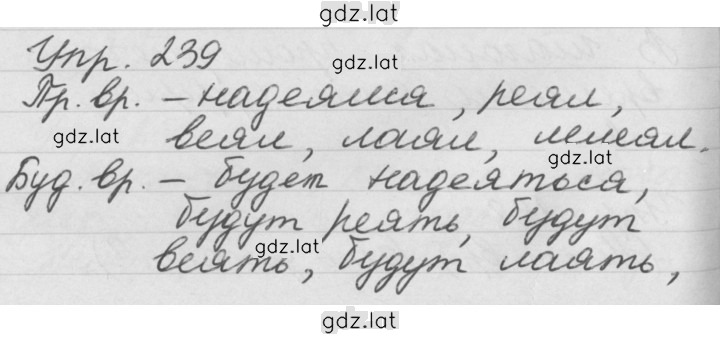 gdz.lat
Упр. 239
gdz.lat
Пр. вр. – надеялся, реял,
gdz.lat
веял, лаял, лелеял.
gdz.lat
Буд. вр. – будет надеяться,
будут реять, будут
gdz.lat
веять, будут лаять,
gdz.lat